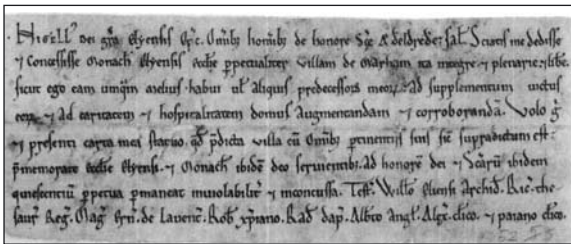 Nigell' dei gr̃a Elyensis Ep̃c. Om̃ib; homĩb; de honore Sc̃e Ædeldrede. sał. Sciatis me dedisse
⁊ Concessisse Monach' Elyensis ecclie p̱petualiter villam de Marham ita integre ⁊ plenarie ⁊ libe
sicut ego eam umquam melius habui ul' aliquis predecessorṣ meoꝝ. Ad supplementum uictus
eoꝝ. ⁊ Ad caritatem ⁊ hospitalitatem domus Augmentandam ⁊ corroborandã. Volo g̊
⁊ presenti carta mea statuo. qđ p̃dicta villa cũ Om̃ib; pertinentiis suis sic̃ supradictum est.
p̃memorate ecclie Elyensi. ⁊ Monach' ibidẽ deo seruientib;. Ad honorẽ dei ⁊ Sc̃arũ ibidem
quiescentiũ p̱petua p̱maneat inuiolabilit̃ ⁊ inconcussa. Test'. Willo Eliensi archid'. Ric̃. the
saur̃ Reg̃. Mag̃ Ern̄. de Lauenr̃. Rob̃ xp̃iano. Rad̃ dap̃. Albr̃o Angl'. Alg̃r̃. clĩco. ⁊ paiano clĩco.